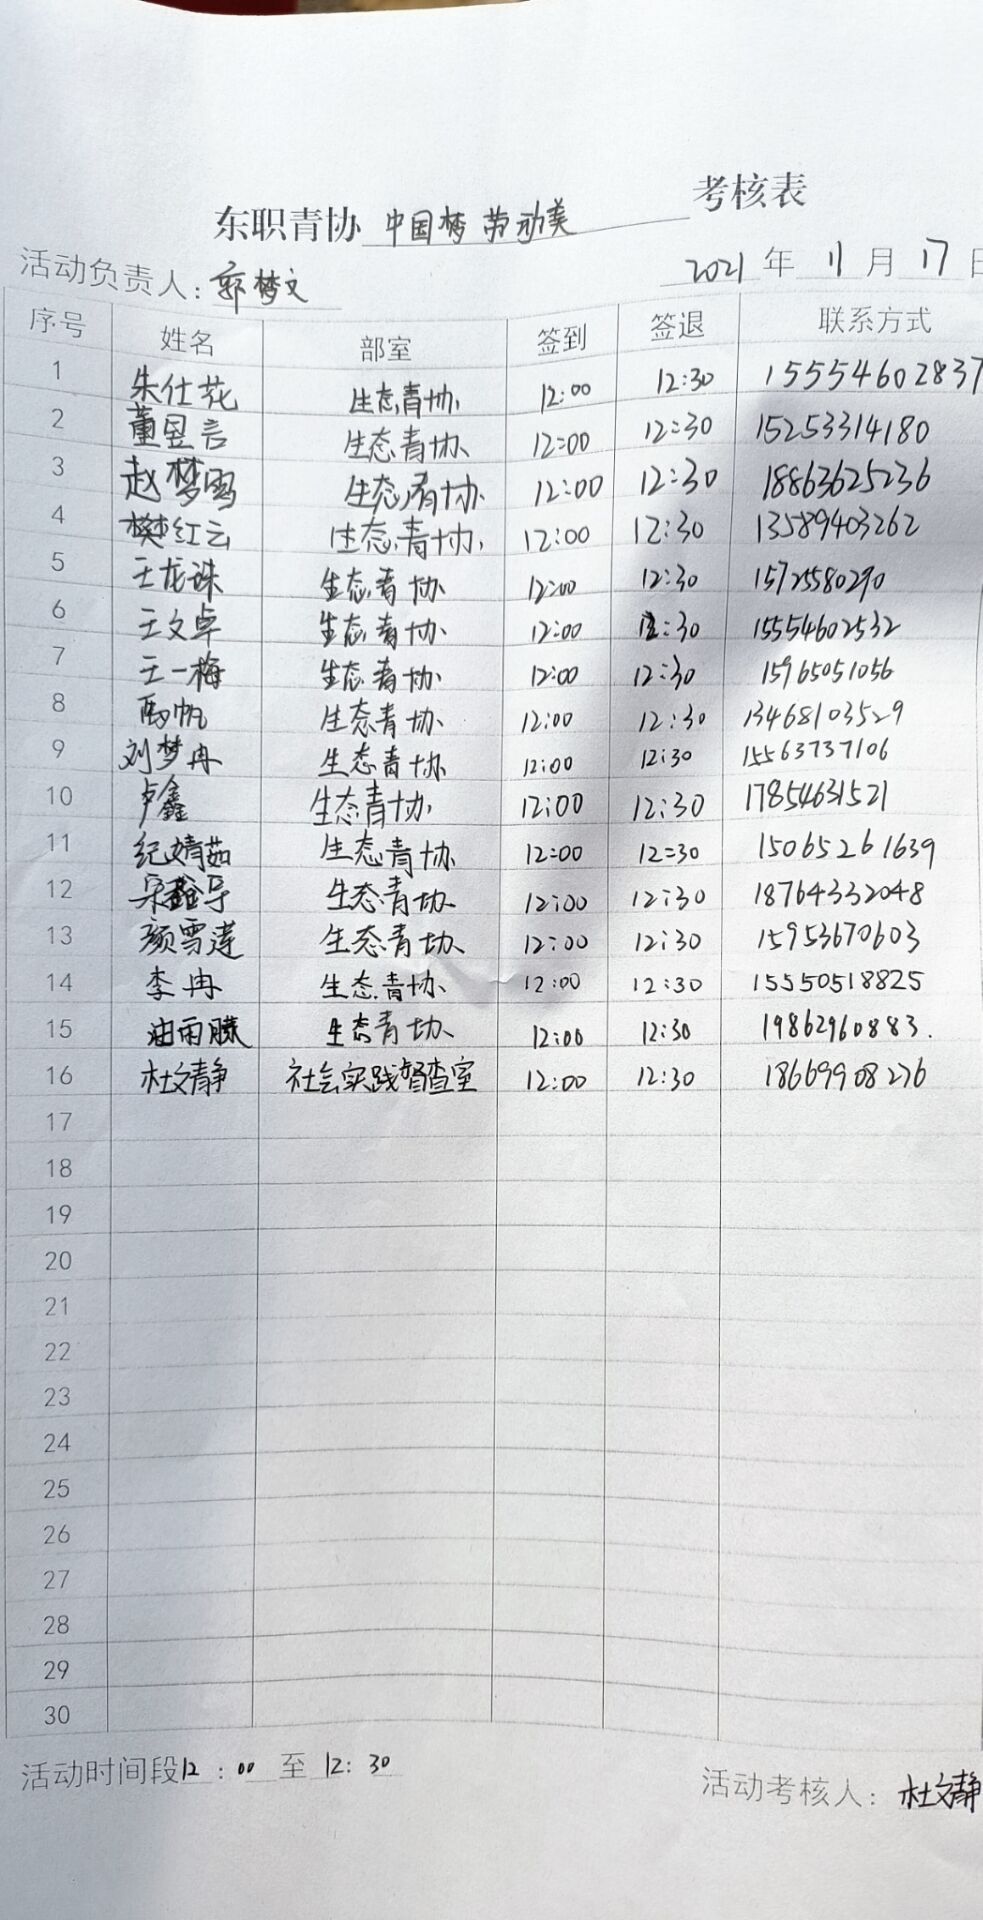 东职青协 中国梦 劳动美 考核表
活动负责人：郭梦文 2021 年 11 月 17 日
序号 姓名 部室 签到 签退 联系方式
1 朱仕花 生态青协 12:00 12:30 15554602837
2 董昱言 生态青协 12:00 12:30 15253314180
3 赵梦雪 生态青协 12:00 12:30 18863625236
4 樊红云 生态青协 12:00 12:30 13589403262
5 王龙珠 生态青协 12:00 12:30 15725580290
6 王文卓 生态青协 12:00 12:30 15554602532
7 王一梅 生态青协 12:00 12:30 15965051056
8 禹帆 生态青协 12:00 12:30 13468103529
9 刘梦冉 生态青协 12:00 12:30 15563737106
10 卢鑫 生态青协 12:00 12:30 17854631521
11 纪婧茹 生态青协 12:00 12:30 15065261639
12 生态青协 12:00 12:30 18764332048
13 颜雪莲 生态青协 12:00 12:30 15953670603
14 李冉 生态青协 12:00 12:30 15550518825
15 油雨朦 生态青协 12:00 12:30 19862960883.
16 杜文静 社会实践督查室 12:00 12:30 18669908276
17
18
19
20
21
22
23
24
25
26
27
28
29
30
活动时间段12：00 至 12：30
活动考核人：杜文静